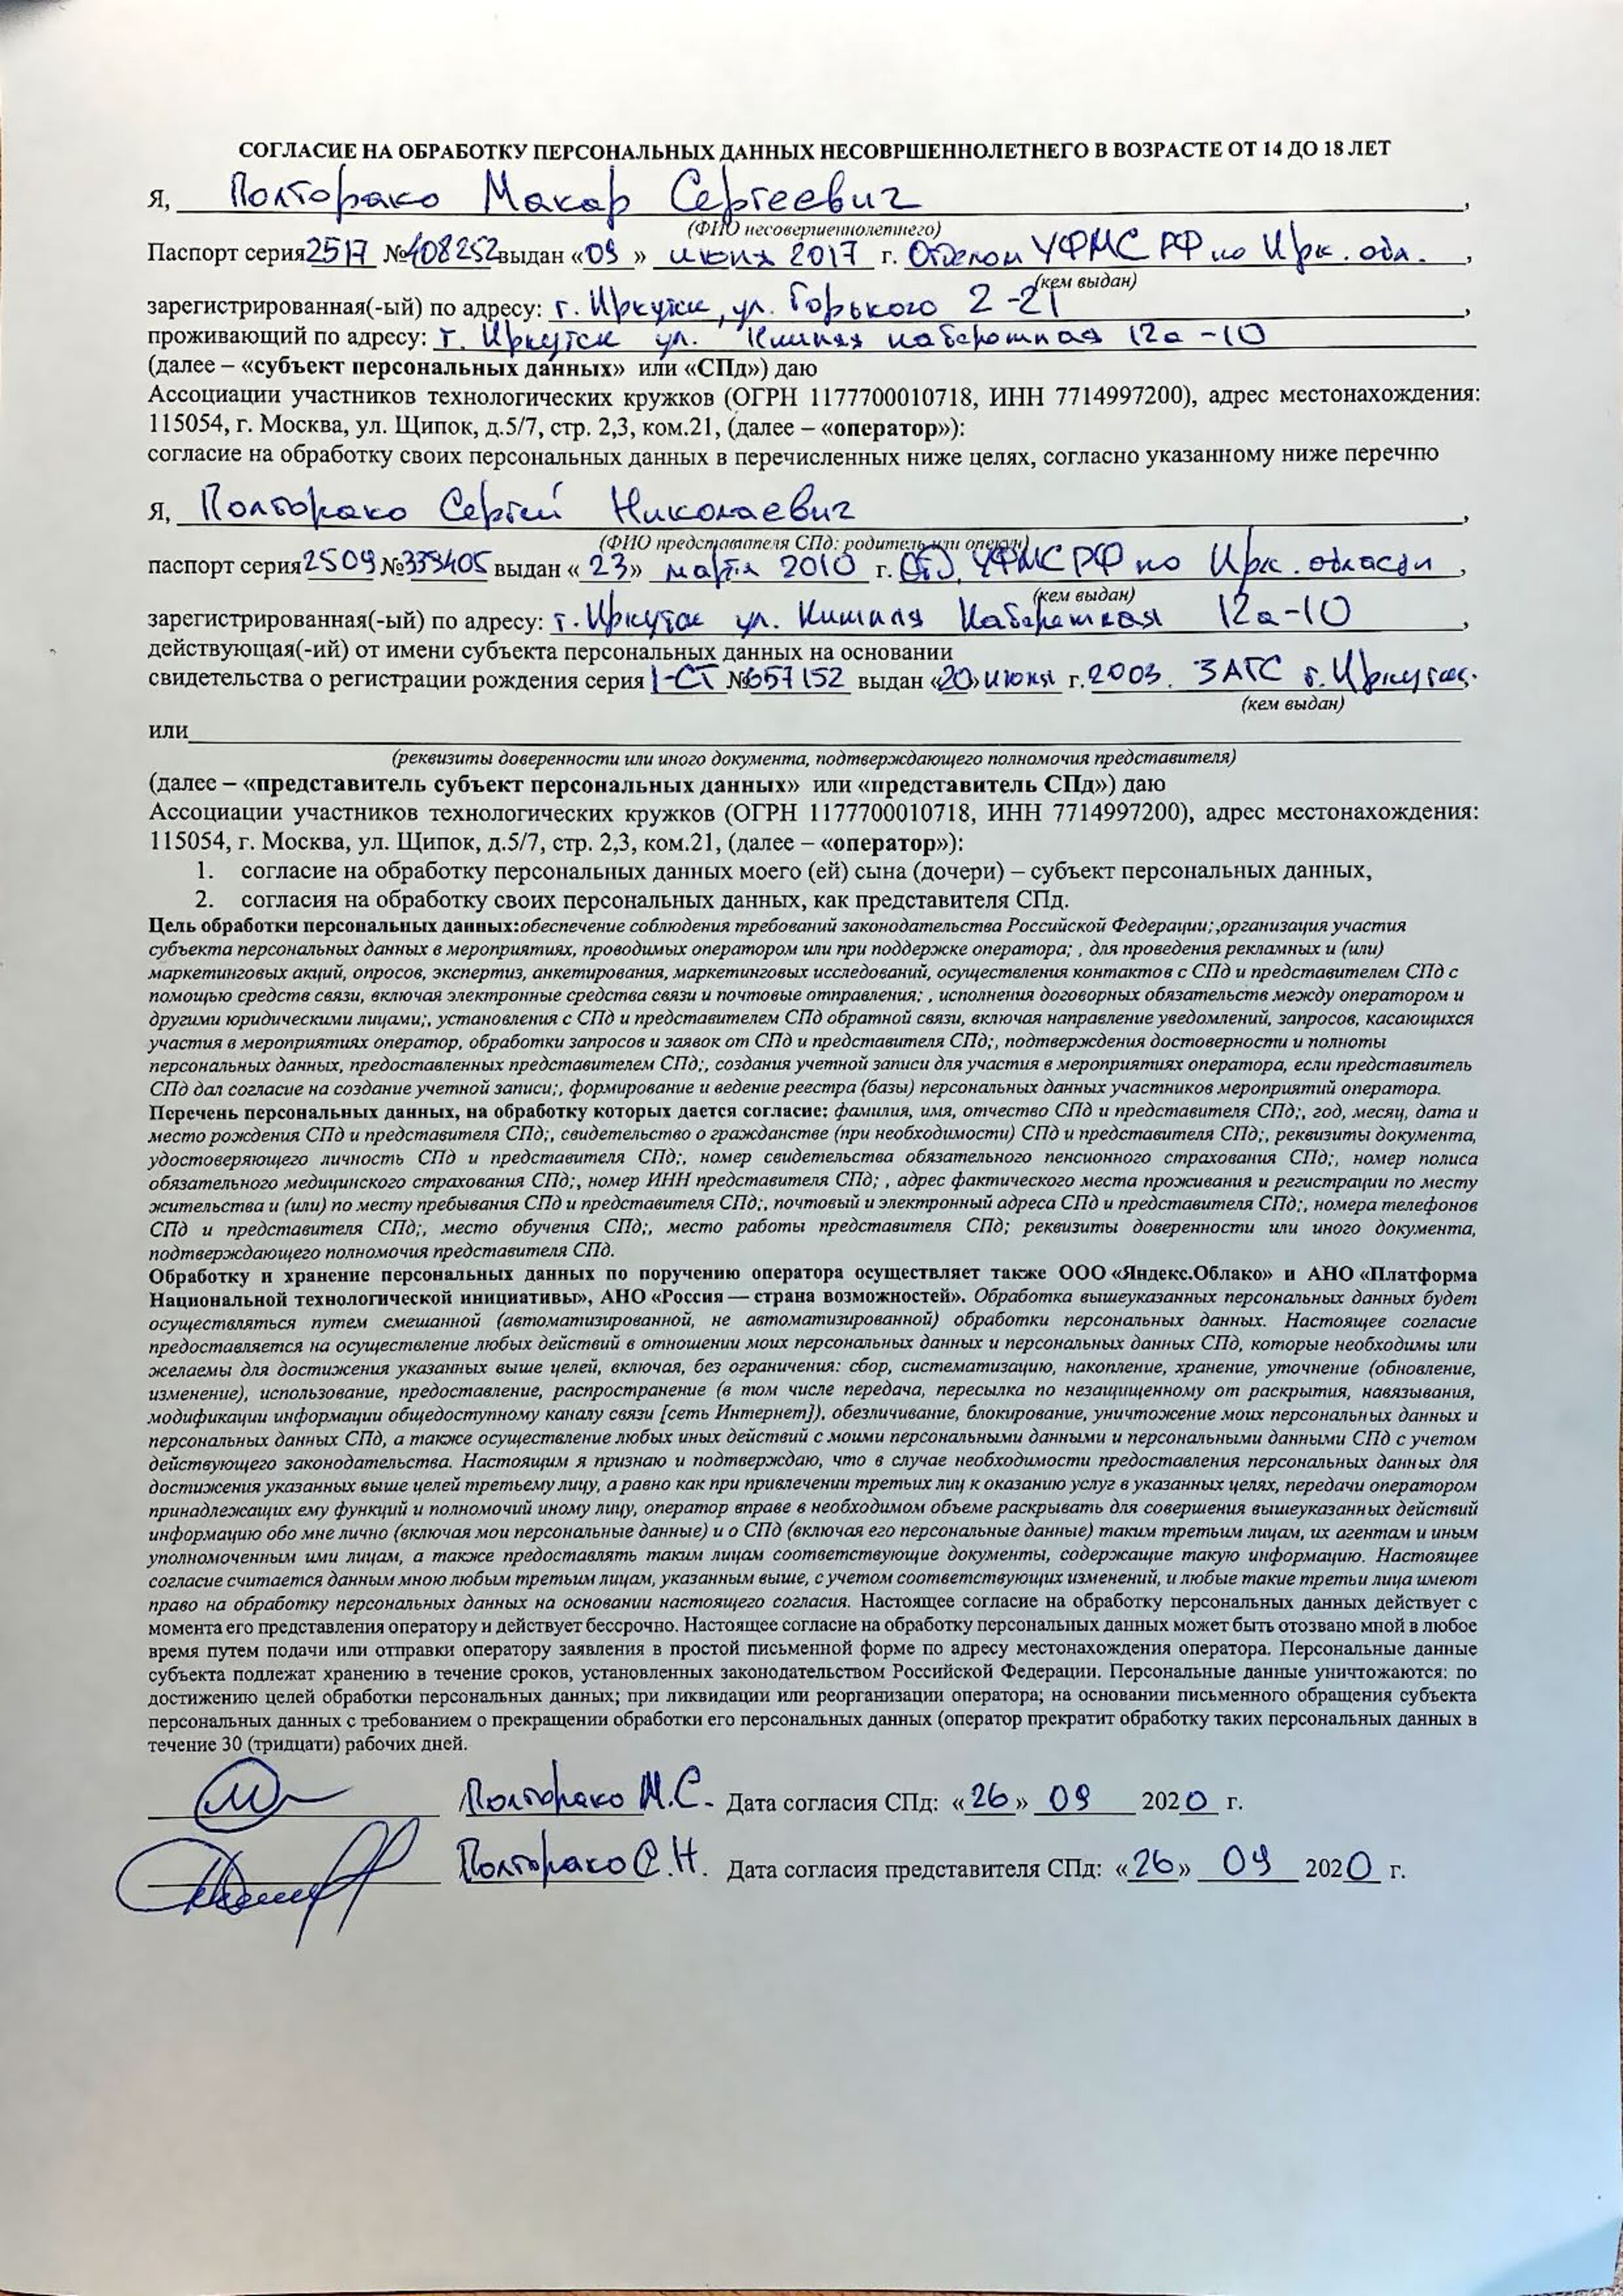 СОГЛАСИЕ НА ОБРАБОТКУ ПЕРСОНАЛЬНЫХ ДАННЫХ НЕСОВРШЕННОЛЕТНЕГО В ВОЗРАСТЕ ОТ 14 ДО 18 ЛЕТ
Я, Полторако Макар Сергеевич,
(ФИО несовершеннолетнего)
Паспорт серия 2517 №408252 выдан «09» июня 2017 г. Отделом УФМС РФ по Ирк. обл.,
(кем выдан)
зарегистрированная(-ый) по адресу: г. Иркутск, ул. Горького 2-21,
проживающий по адресу: г. Иркутск ул. набережная 12а-10
(далее – «субъект персональных данных» или «СПд») даю
Ассоциации участников технологических кружков (ОГРН 1177700010718, ИНН 7714997200), адрес местонахождения:
115054, г. Москва, ул. Щипок, д.5/7, стр. 2,3, ком.21, (далее – «оператор»):
согласие на обработку своих персональных данных в перечисленных ниже целях, согласно указанному ниже перечню
Я, Полторако Сергей Николаевич,
(ФИО представителя СПд: родитель или опекун)
паспорт серия 2509 № выдан «23» марта 2010 г. УФМС РФ по Ирк. области,
(кем выдан)
зарегистрированная(-ый) по адресу: г. Иркутск ул. Набережная 12а-10,
действующая(-ий) от имени субъекта персональных данных на основании
свидетельства о регистрации рождения серия I-СТ №657152 выдан «20» июня г. 2003. ЗАГС г. Иркутск.
(кем выдан)
или
(реквизиты доверенности или иного документа, подтверждающего полномочия представителя)
(далее – «представитель субъект персональных данных» или «представитель СПд») даю
Ассоциации участников технологических кружков (ОГРН 1177700010718, ИНН 7714997200), адрес местонахождения:
115054, г. Москва, ул. Щипок, д.5/7, стр. 2,3, ком.21, (далее – «оператор»):
1. согласие на обработку персональных данных моего (ей) сына (дочери) – субъект персональных данных,
2. согласия на обработку своих персональных данных, как представителя СПд.
Цель обработки персональных данных:обеспечение соблюдения требований законодательства Российской Федерации;,организация участия
субъекта персональных данных в мероприятиях, проводимых оператором или при поддержке оператора; , для проведения рекламных и (или)
маркетинговых акций, опросов, экспертиз, анкетирования, маркетинговых исследований, осуществления контактов с СПд и представителем СПд с
помощью средств связи, включая электронные средства связи и почтовые отправления; , исполнения договорных обязательств между оператором и
другими юридическими лицами;, установления с СПд и представителем СПд обратной связи, включая направление уведомлений, запросов, касающихся
участия в мероприятиях оператор, обработки запросов и заявок от СПд и представителя СПд;, подтверждения достоверности и полноты
персональных данных, предоставленных представителем СПд;, создания учетной записи для участия в мероприятиях оператора, если представитель
СПд дал согласие на создание учетной записи;, формирование и ведение реестра (базы) персональных данных участников мероприятий оператора.
Перечень персональных данных, на обработку которых дается согласие: фамилия, имя, отчество СПд и представителя СПд;, год, месяц, дата и
место рождения СПд и представителя СПд;, свидетельство о гражданстве (при необходимости) СПд и представителя СПд;, реквизиты документа,
удостоверяющего личность СПд и представителя СПд;, номер свидетельства обязательного пенсионного страхования СПд;, номер полиса
обязательного медицинского страхования СПд;, номер ИНН представителя СПд; , адрес фактического места проживания и регистрации по месту
жительства и (или) по месту пребывания СПд и представителя СПд;, почтовый и электронный адреса СПд и представителя СПд;, номера телефонов
СПд и представителя СПд;, место обучения СПд;, место работы представителя СПд; реквизиты доверенности или иного документа,
подтверждающего полномочия представителя СПд.
Обработку и хранение персональных данных по поручению оператора осуществляет также ООО «Яндекс.Облако» и АНО «Платформа
Национальной технологической инициативы», АНО «Россия — страна возможностей». Обработка вышеуказанных персональных данных будет
осуществляться путем смешанной (автоматизированной, не автоматизированной) обработки персональных данных. Настоящее согласие
предоставляется на осуществление любых действий в отношении моих персональных данных и персональных данных СПд, которые необходимы или
желаемы для достижения указанных выше целей, включая, без ограничения: сбор, систематизацию, накопление, хранение, уточнение (обновление,
изменение), использование, предоставление, распространение (в том числе передача, пересылка по незащищенному от раскрытия, навязывания,
модификации информации общедоступному каналу связи [сеть Интернет]), обезличивание, блокирование, уничтожение моих персональных данных и
персональных данных СПд, а также осуществление любых иных действий с моими персональными данными и персональными данными СПд с учетом
действующего законодательства. Настоящим я признаю и подтверждаю, что в случае необходимости предоставления персональных данных для
достижения указанных выше целей третьему лицу, а равно как при привлечении третьих лиц к оказанию услуг в указанных целях, передачи оператором
принадлежащих ему функций и полномочий иному лицу, оператор вправе в необходимом объеме раскрывать для совершения вышеуказанных действий
информацию обо мне лично (включая мои персональные данные) и о СПд (включая его персональные данные) таким третьим лицам, их агентам и иным
уполномоченным ими лицам, а также предоставлять таким лицам соответствующие документы, содержащие такую информацию. Настоящее
согласие считается данным мною любым третьим лицам, указанным выше, с учетом соответствующих изменений, и любые такие третьи лица имеют
право на обработку персональных данных на основании настоящего согласия. Настоящее согласие на обработку персональных данных действует с
момента его представления оператору и действует бессрочно. Настоящее согласие на обработку персональных данных может быть отозвано мной в любое
время путем подачи или отправки оператору заявления в простой письменной форме по адресу местонахождения оператора. Персональные данные
субъекта подлежат хранению в течение сроков, установленных законодательством Российской Федерации. Персональные данные уничтожаются: по
достижению целей обработки персональных данных; при ликвидации или реорганизации оператора; на основании письменного обращения субъекта
персональных данных с требованием о прекращении обработки его персональных данных (оператор прекратит обработку таких персональных данных в
течение 30 (тридцати) рабочих дней.
/Полторако М.С. Дата согласия СПд: «26» 09 2020 г.
Полторако С.Н. Дата согласия представителя СПд: «26» 09 2020 г.